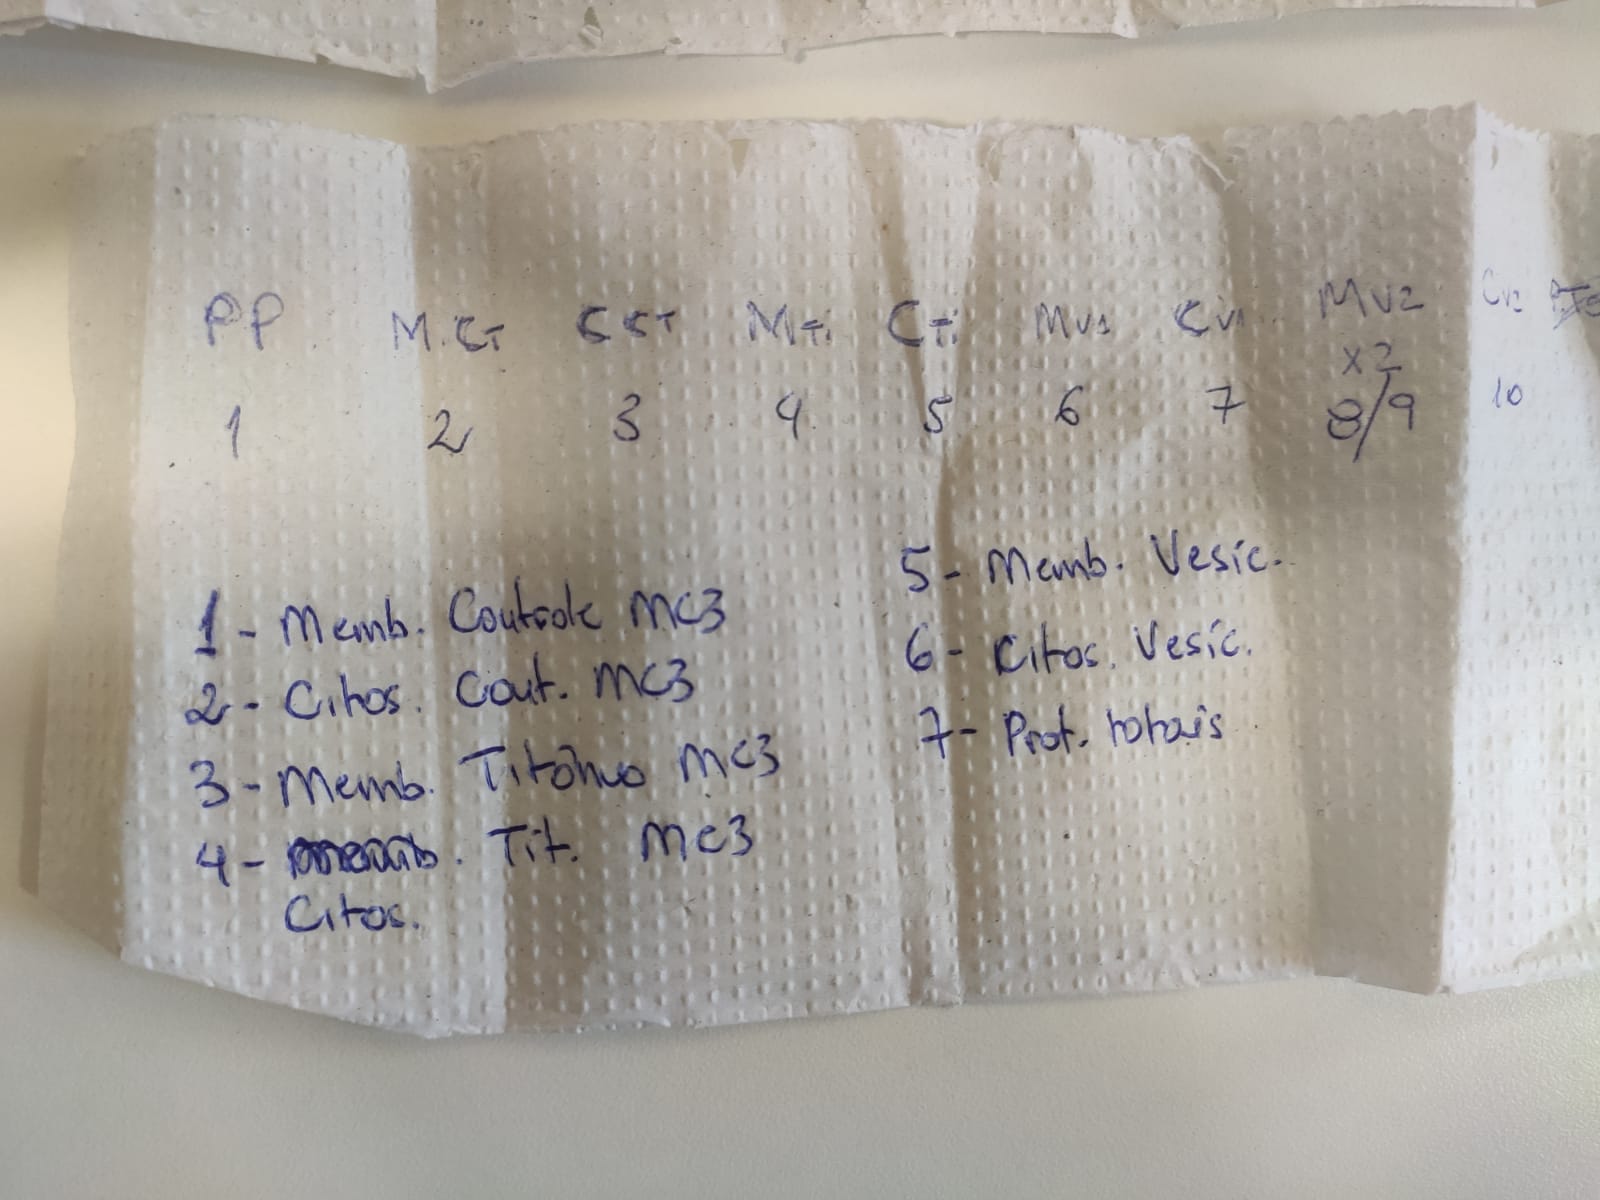 PP M.CT CCT MTi CTi MV1 CV1 MV2 CV2
x2
1 2 3 4 5 6 7 8/9 10
1 - Memb. Controle MC3
2 - Citos. Cont. MC3
3 - Memb. Titânio MC3
4 - Tit. MC3
Citos.
5 - Memb. Vesic.
6 - Citos. Vesic.
7 - Prot. totais